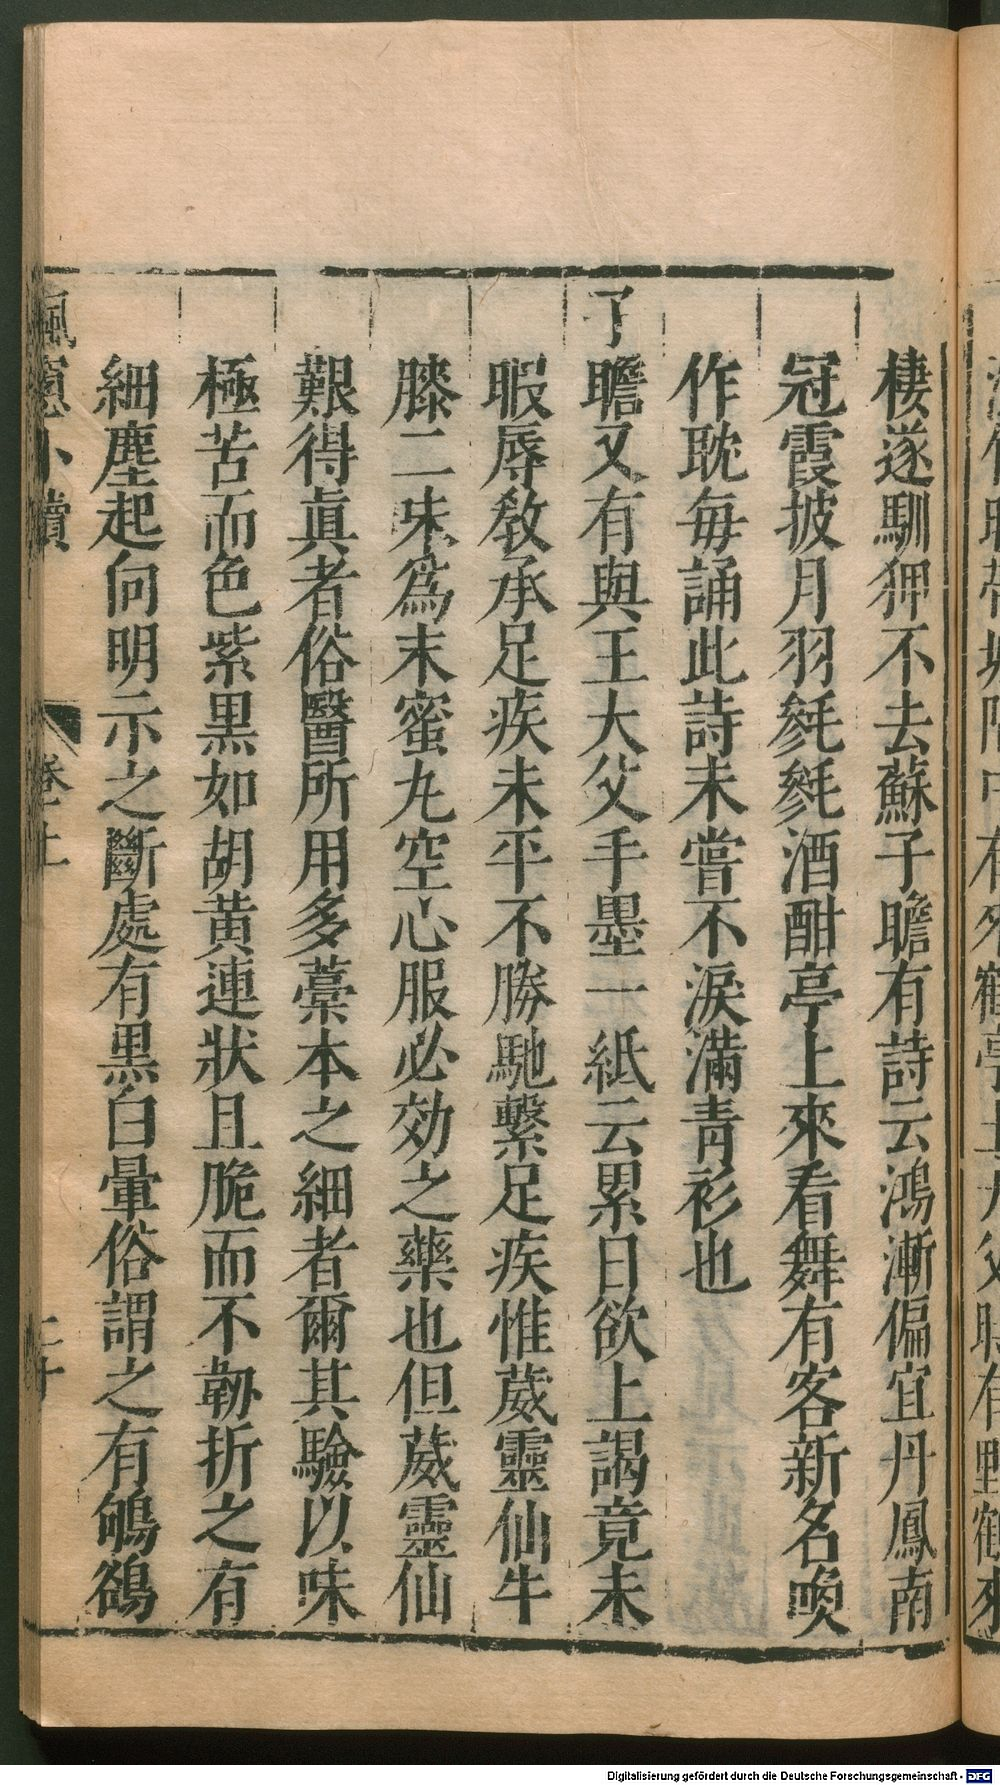 棲遂馴狎不去蘇子瞻有詩云鴻漸偏宜丹鳳南
冠霞披月羽毿毿酒酣亭上來看舞有客新名喚
作耽每誦此詩未嘗不淚滿青衫也
了瞻又有與王大父手墨一紙云累日欲上謁竟未
暇辱教承足疾未平不勝馳繫足疾惟葳靈仙牛
膝二味爲末蜜丸空心服必効之藥也但葳靈仙
艱得眞者俗醫所用多藁本之細者爾其驗以味
極苦而色紫黒如胡黄連狀且脆而不韌折之有
細塵起向明示之斷處有黒白暈俗謂之有鴝鵒
楓窓小牘
卷上
Digitalisierung gefördert durch die Deutsche Forschungsgemeinschaft - DFG